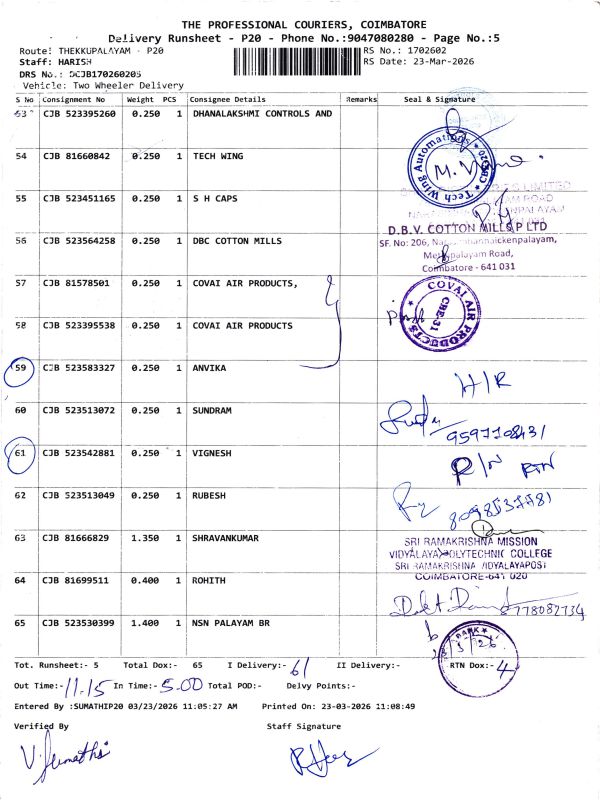 THE PROFESSIONAL COURIERS, COIMBATORE
Delivery Runsheet - P20 - Phone No.:9047080280 - Page No.:5
Route: THEKKUPALAYAM - P20 RS No.: 1702602
Staff: HARISH RS Date: 23-Mar-2026
DRS No.: DCJB170260205
Vehicle: Two Wheeler Delivery
S No Consignment No Weight PCS Consignee Details Remarks Seal & Signature
53 CJB 523395260 0.250 1 DHANALAKSHMI CONTROLS AND
54 CJB 81660842 0.250 1 TECH WING
Tech Wing Automations
55 CJB 523451165 0.250 1 S H CAPS
LIMITED
ROAD
D.B.V. COTTON MILLS P LTD
56 CJB 523564258 0.250 1 DBC COTTON MILLS
SF. No: 206,
Road,
Coimbatore - 641 031
57 CJB 81578501 0.250 1 COVAI AIR PRODUCTS,
COVAI AIR PRODUCTS
CBE-31
58 CJB 523395538 0.250 1 COVAI AIR PRODUCTS
59 CJB 523583327 0.250 1 ANVIKA
H/R
60 CJB 523513072 0.250 1 SUNDRAM
61 CJB 523542881 0.250 1 VIGNESH
R/N RTN
62 CJB 523513049 0.250 1 RUBESH
63 CJB 81666829 1.350 1 SHRAVANKUMAR
SRI RAMAKRISHNA MISSION
VIDYALAYA POLYTECHNIC COLLEGE
SRI RAMAKRISHNA VIDYALAYA POST
COIMBATORE-641 020
64 CJB 81699511 0.400 1 ROHITH
8778082734
65 CJB 523530399 1.400 1 NSN PALAYAM BR
Tot. Runsheet:- 5 Total Dox:- 65 I Delivery:- 61 II Delivery:- RTN Dox:- 4
Out Time:- 11.15 In Time:- 5.00 Total POD:- Delvy Points:-
Entered By :SUMATHIP20 03/23/2026 11:05:27 AM Printed On: 23-03-2026 11:08:49
Verified By Staff Signature
V. Sumathi